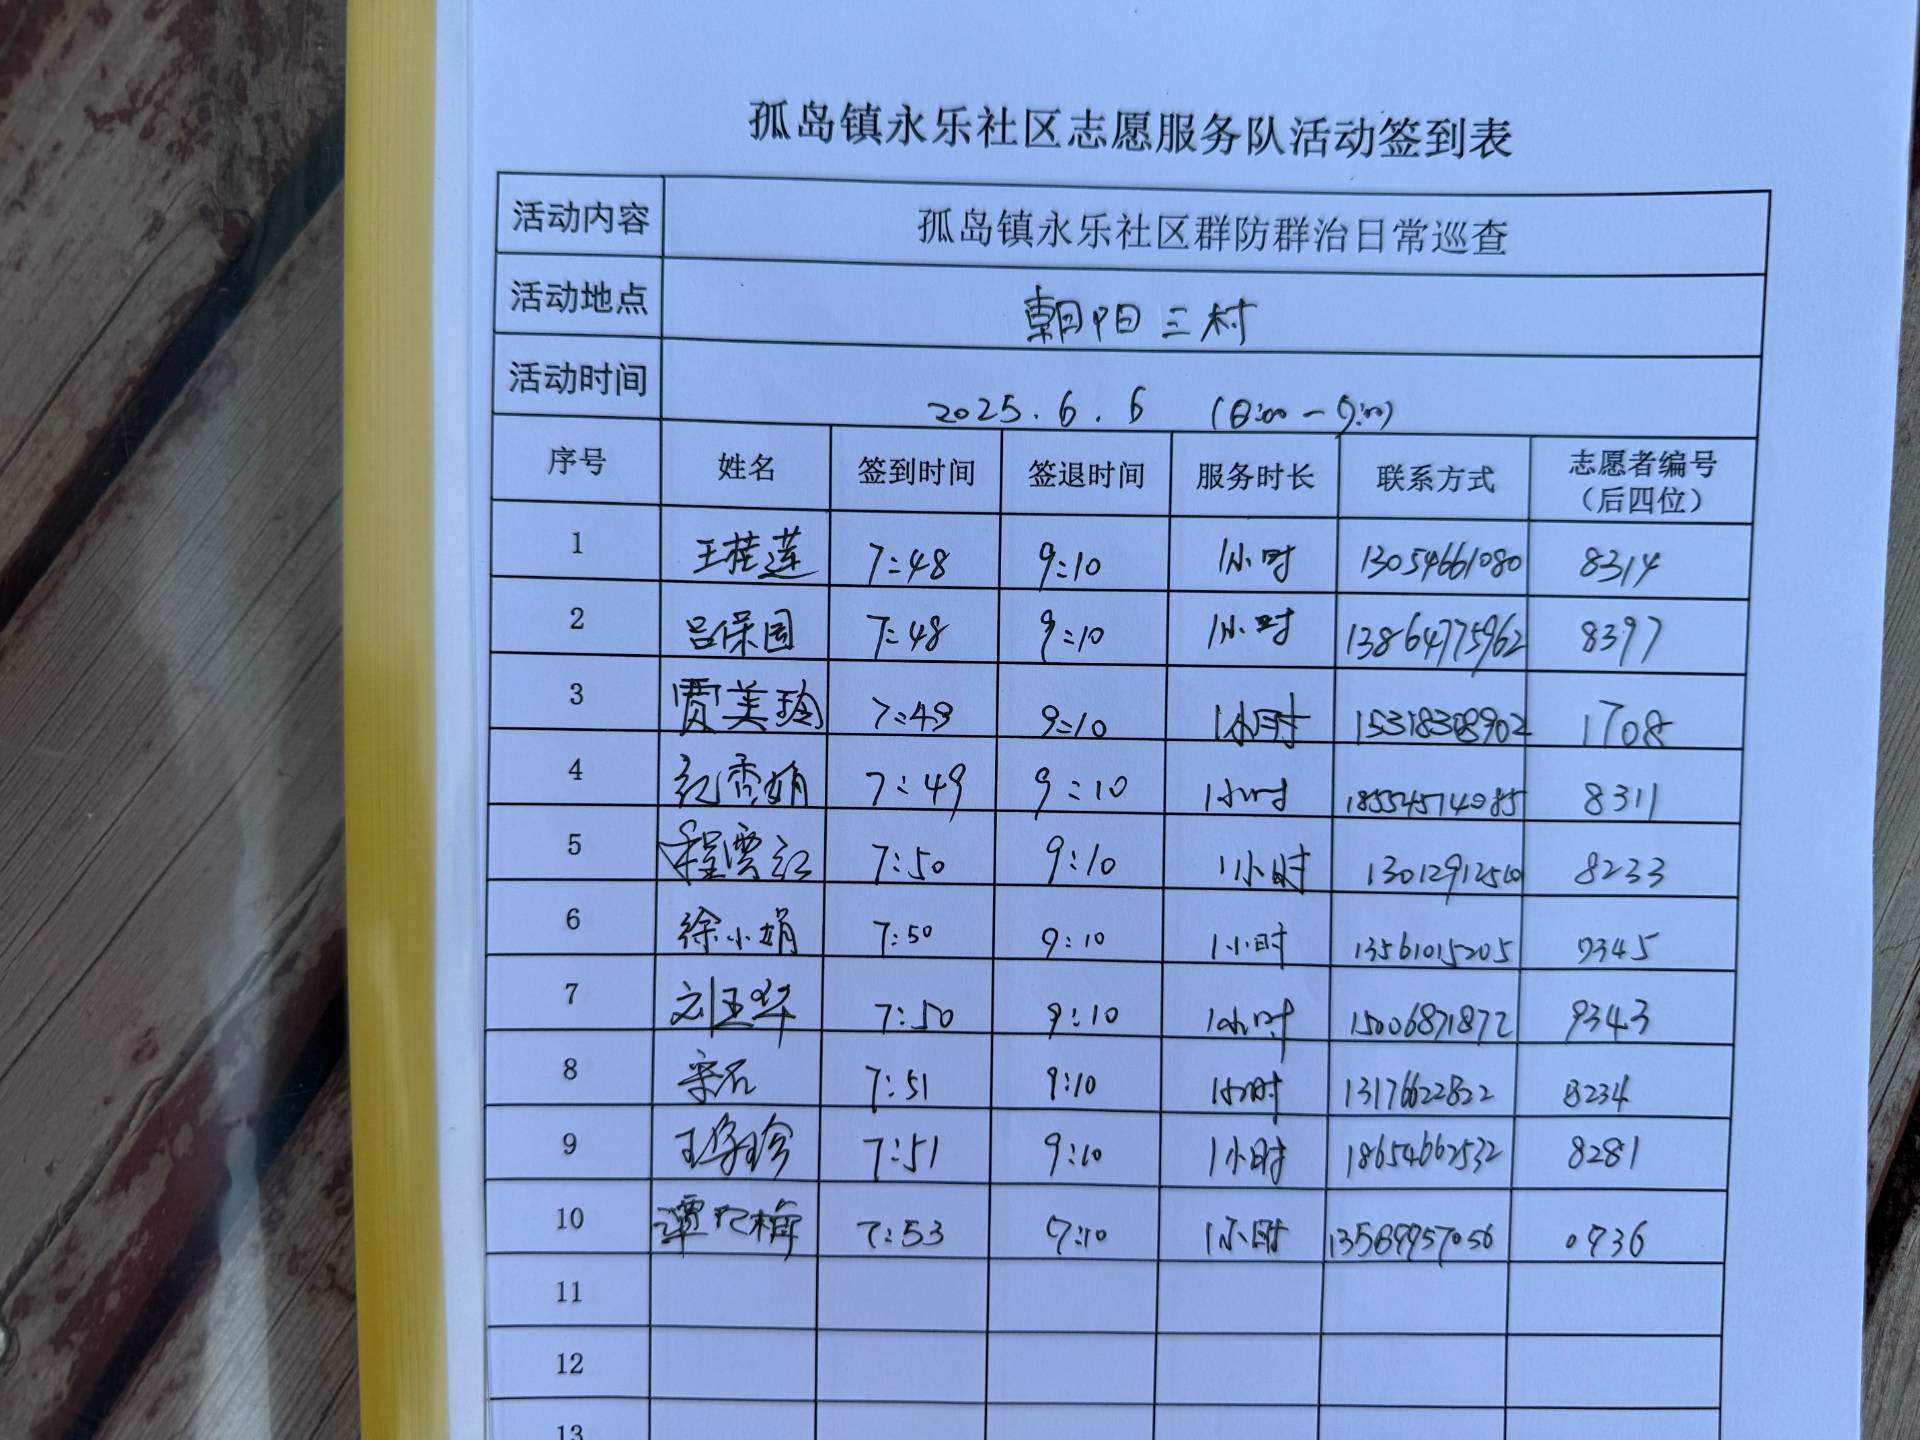 孤岛镇永乐社区志愿服务队活动签到表
活动内容 孤岛镇永乐社区群防群治日常巡查
活动地点 朝阳三村
活动时间 2025.6.6 (8:00-9:00)
序号 姓名 签到时间 签退时间 服务时长 联系方式 志愿者编号（后四位）
1 王桂莲 7:48 9:10 1小时 13054661080 8314
2 吕保国 7:48 9:10 1小时 13864775962 8397
3 贾美玲 7:49 9:10 1小时 15318308902 1708
4 纪香娟 7:49 9:10 1小时 18554574085 8311
5 程雪红 7:50 9:10 1小时 8233
6 徐小娟 7:50 9:10 1小时 13561015205 9345
7 刘玉华 7:50 9:10 1小时 15006871872 9343
8 7:51 9:10 1小时 13176622822 8234
9 7:51 9:10 1小时 18654662532 8281
10 7:53 9:10 1小时 0936
11
12
13